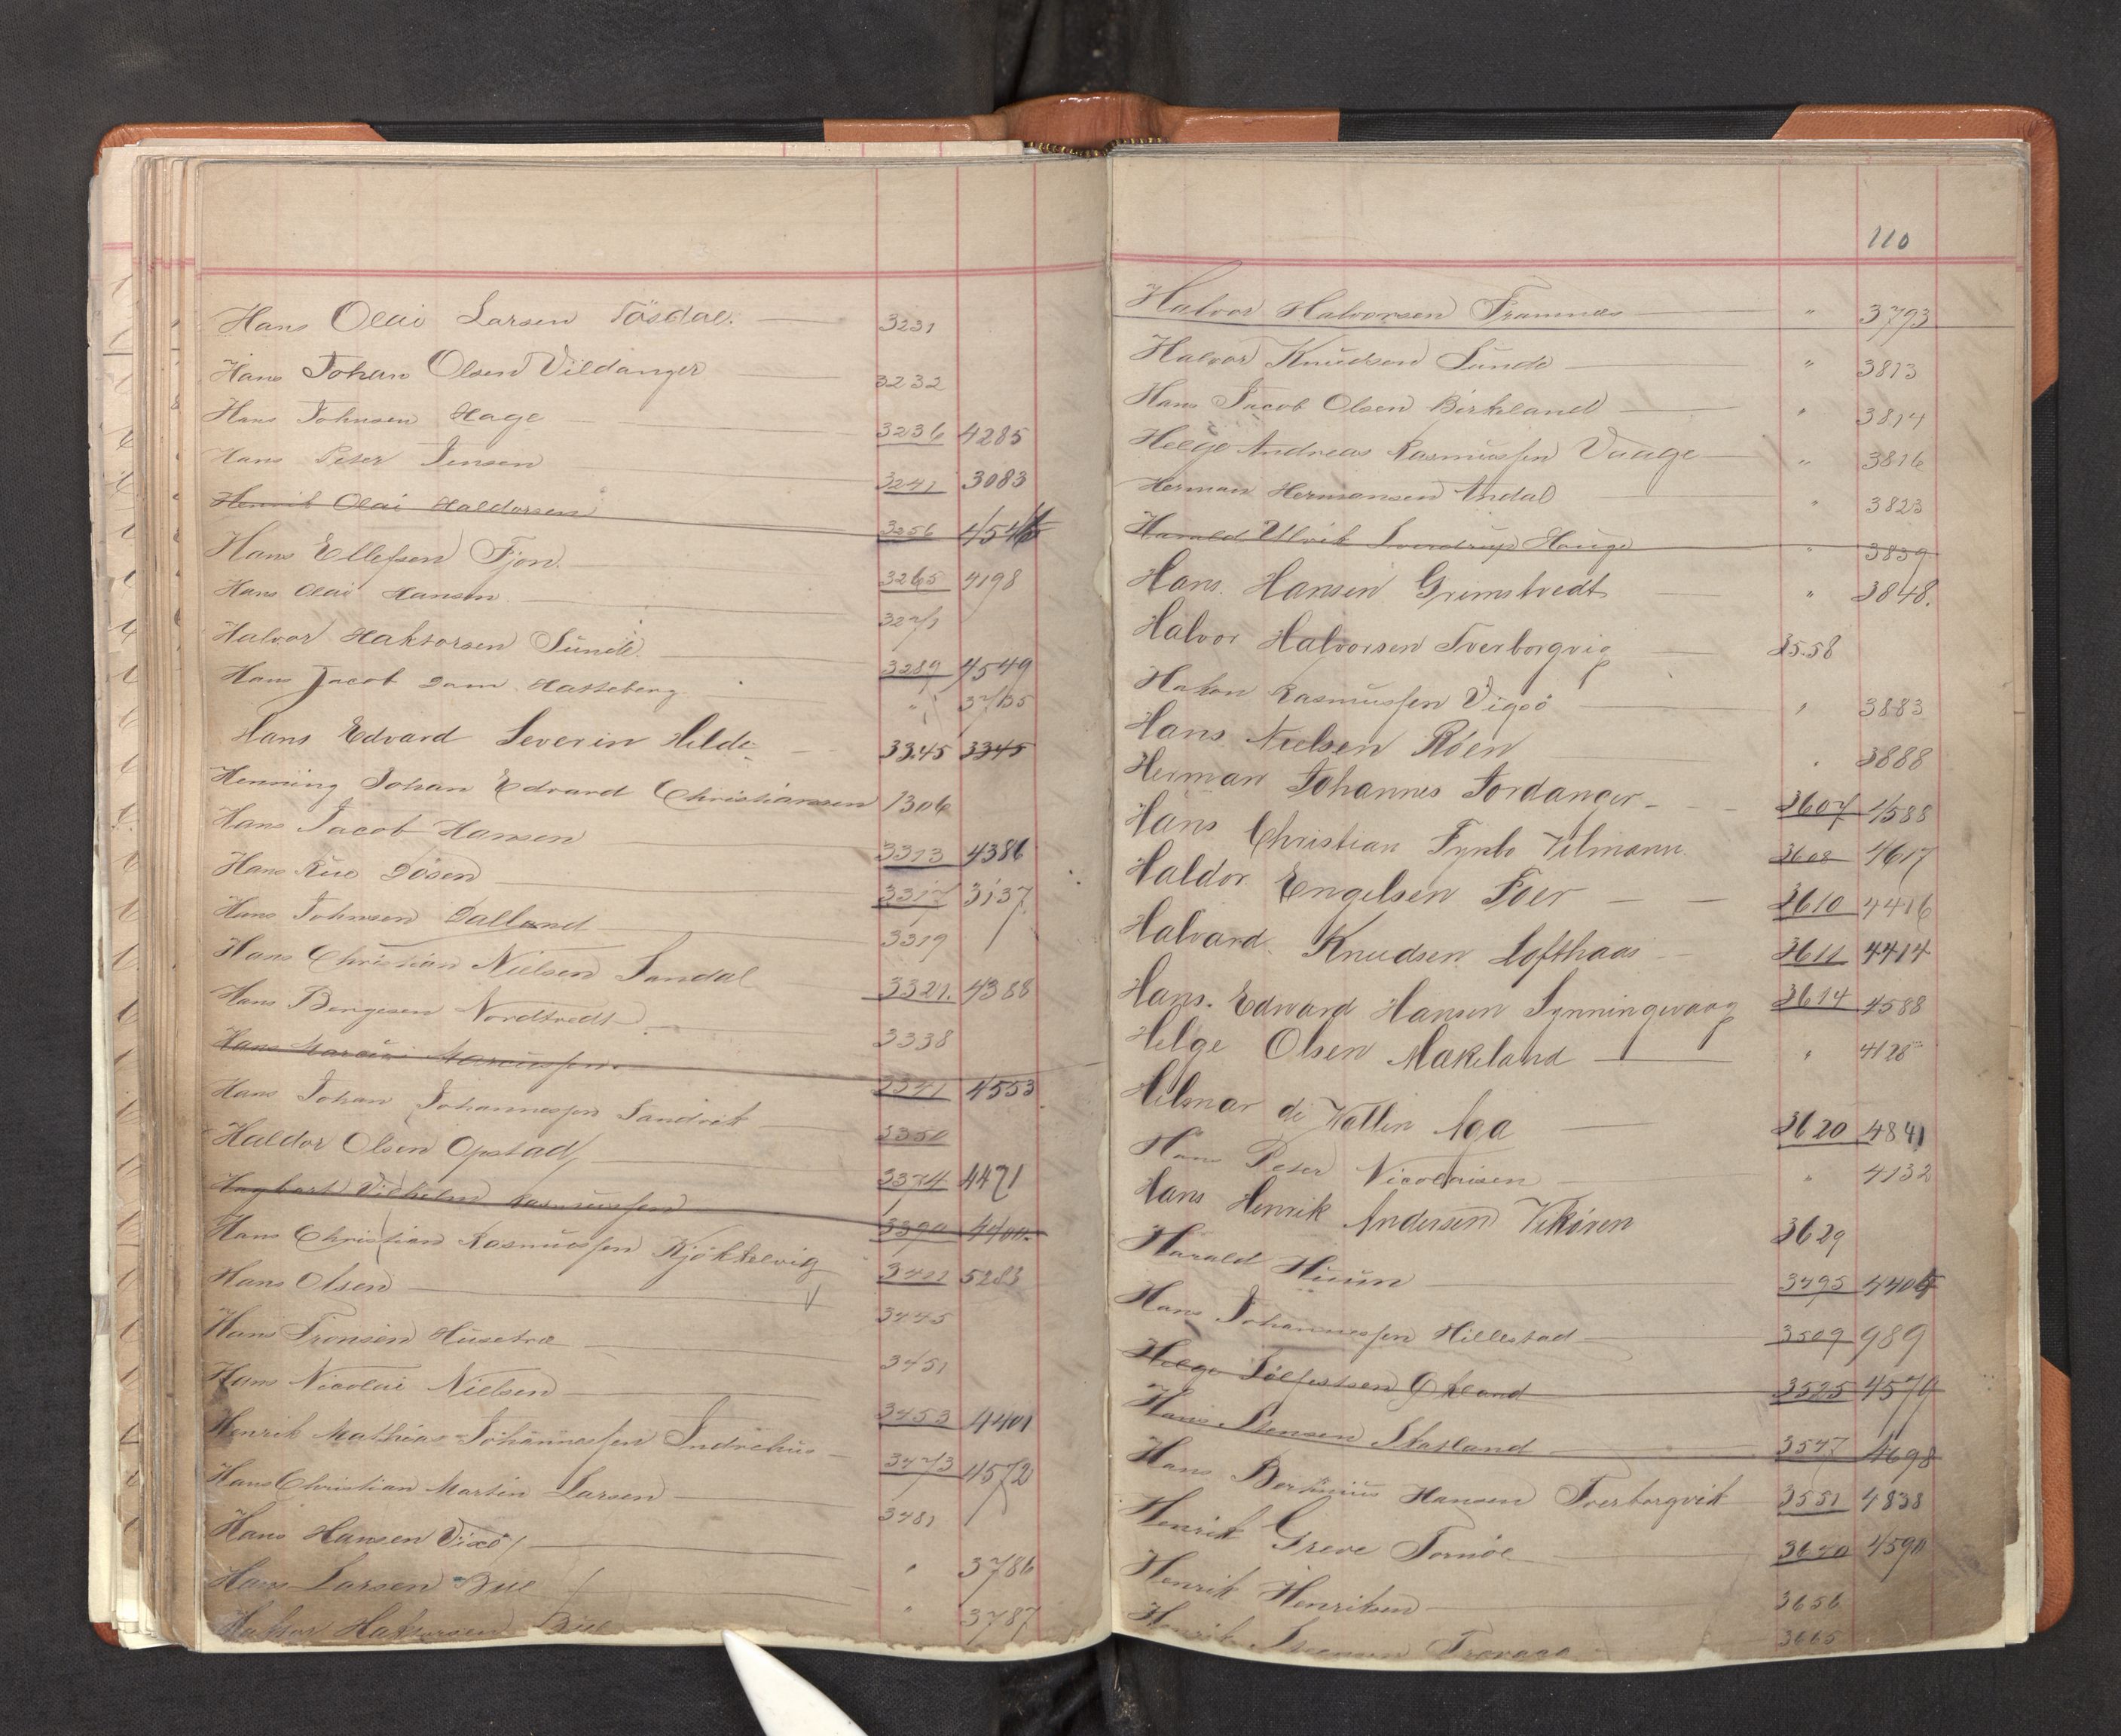 Hans Olai Larsen Tösdal. 3231
Hans Johan Olsen Vildanger 3232
Hans Johnsen Hage 3236 4285
Hans Peter Jensen 3241 3083
Henrik Olai Haldorsen 3256
Hans Ellefsen Fjon. 3265 4198
Hans Olai Hansen 3271
Halvor Haktorsen Sunde. 3289 4549
Hans Jacob Dam Hatteberg " 3735
Hans Edvard Severin Hilde 3345 3345
Henning Johan Edvard Christiansen 1306
Hans Jacob Hansen 3313 4386
Hans Rue Dösen 3317 3137
Hans Johnsen Dalland 3319
Hans Christian Nielsen Sandal 3321. 4388
Hans Bergesen Nordtvedt 3338
Hans Marcus Marcussen 3341 4553
Hans Johan Johannessen Sandvik 3350
Haldor Olsen Opstad 3374 4471
Hagbart Vilhelm Rasmussen 3390
Hans Christian Rasmussen Kjökkelvig 3421 5283
Hans Olsen 3445
Hans Tronsen Husetræ 3451
Hans Nicolai Nielsen 3453 4401
Henrik Mathias Johannessen Indrehus 3473 4572
Hans Christian Martin Larsen 3481
Hans Hansen Vixö " 3786
Hans Larsen Bue " 3787
Haktor Haktorsen Bue
110
Halvor Halvorsen Framnæs " 3793
Halvor Knudsen Sunde " 3813
Hans Jacob Olsen Birkeland " 3814
Helge Andreas Rasmussen Vaage " 3816
Herman Hermansen Andal " 3823
Harald Ulvik Sverdrup Hauge " 3839
Hans Hansen Grimstvedt " 3848.
Halvor Halvorsen Tverborgvig 3558
Hakon Rasmussen Vigsö " 3883
Hans Nielsen Röen " 3888
Herman Johannes Jordanger 3607 4588
Hans Christian Fynbo Vilmann 3608 4617
Haldor Engelsen Foer 3610 4416
Halvard Knudsen Lofthaas 3611 4414
Hans. Edward Hansen Synningvaag 3614 4588
Helge Olsen Mækeland " 4128
Hilmar de Wallin Aga 3620 4841
Hans Peter Nicolaisen " 4132
Hans Henrik Andersen Vikören 3629
Harald Huun 3495
Hans Johannessen Hillestad 3509 989
Helge Sölfestsen Ökland 3525 4570
Hans Stensen Skatland 3547 4698
Hans Bertinius Hansen Tverborgvik 3551 4838
Henrik Greve Tornöe 3640 4590
Henrik Henriksen 3656
Henrik 3665